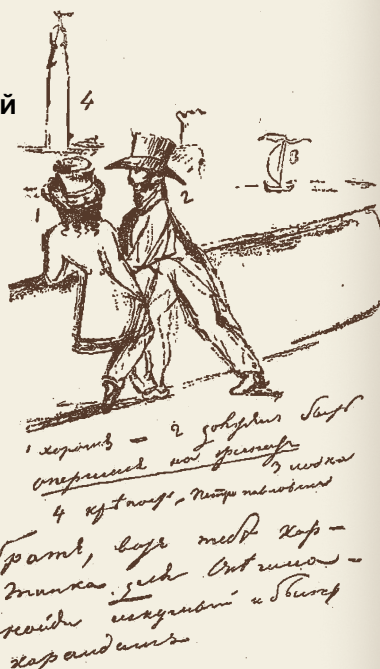 й
4
3
2
1
1 хорошъ — 2 долженъ быть
опершися на гранитъ
3 лодка
4 крѣпость, Петропавловская
Братъ, вотъ тебѣ кар-
тинка для Онѣгина —
найди искусный и быстрый
карандашъ